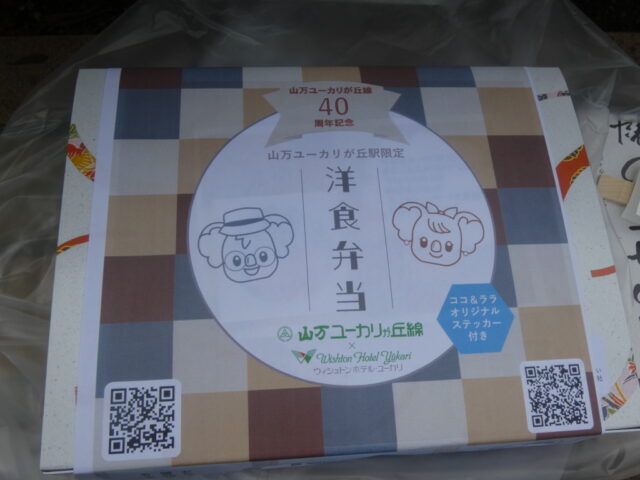 山万ユーカリが丘線
40
周年記念
山万ユーカリが丘駅限定
洋食弁当
ココ&ララ
オリジナル
ステッカー
付き
山万ユーカリが丘線
×
Wishton Hotel Yūkari
ウィシュトンホテル・ユーカリ